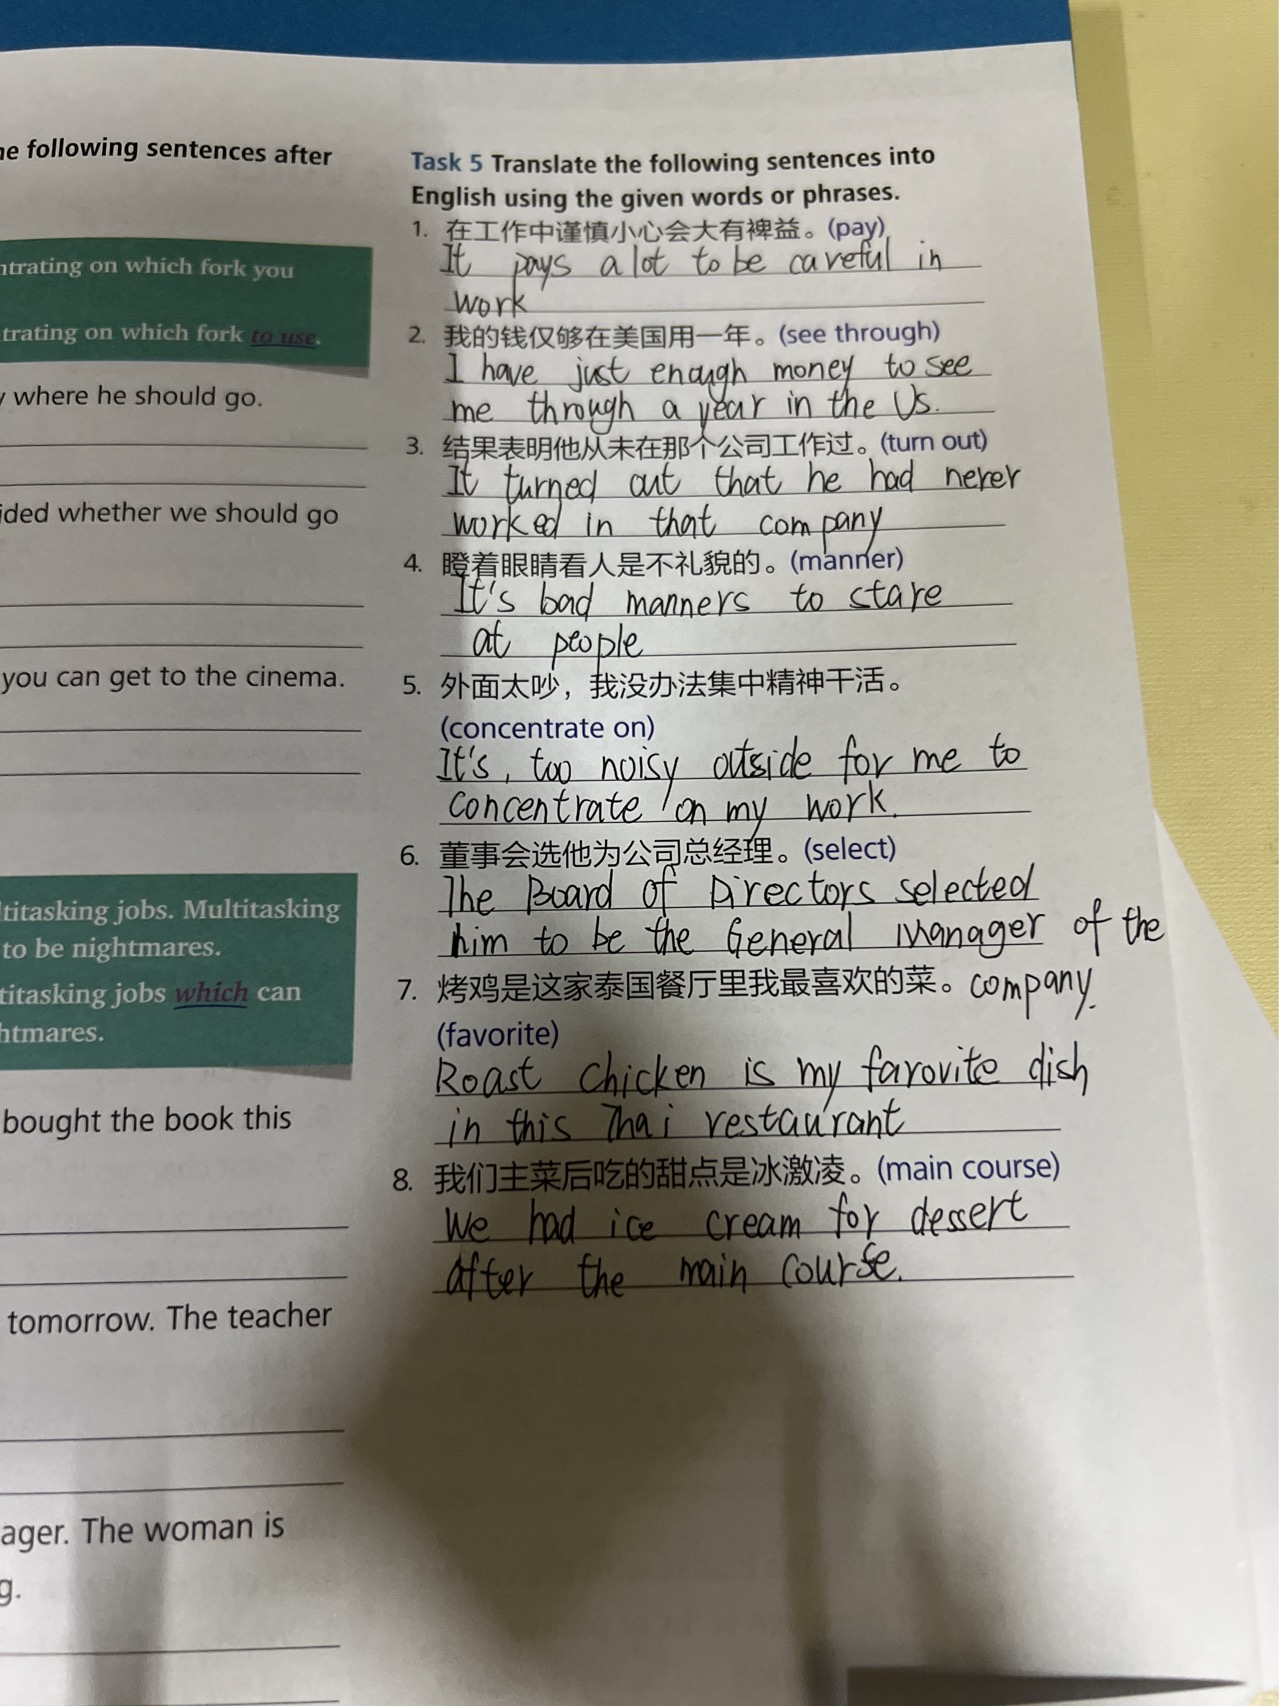 he following sentences after
ntrating on which fork you
trating on which fork to use.
y where he should go.
ided whether we should go
you can get to the cinema.
ltitasking jobs. Multitasking
to be nightmares.
titasking jobs which can
htmares.
bought the book this
tomorrow. The teacher
ager. The woman is
g.
Task 5 Translate the following sentences into
English using the given words or phrases.
1. 在工作中谨慎小心会大有裨益。(pay)
It pays a lot to be careful in
work
2. 我的钱仅够在美国用一年。(see through)
I have just enough money to see
me through a year in the Us.
3. 结果表明他从未在那个公司工作过。(turn out)
It turned out that he had never
worked in that company
4. 瞪着眼睛看人是不礼貌的。(manner)
It's bad manners to stare
at people
5. 外面太吵，我没办法集中精神干活。
(concentrate on)
It's, too noisy outside for me to
concentrate on my work.
6. 董事会选他为公司总经理。(select)
The Board of Directors selected
him to be the General Manager of the
company.
7. 烤鸡是这家泰国餐厅里我最喜欢的菜。
(favorite)
Roast chicken is my farovite dish
in this Thai restaurant
8. 我们主菜后吃的甜点是冰激凌。(main course)
We had ice cream for dessert
after the main course.